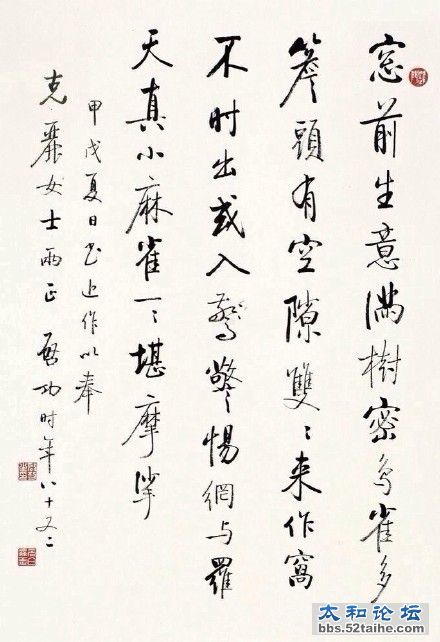 窓前生意满樹密鸟雀多
簷頭有空隙雙〻来作窩
不时出或入驚警惕網与羅
天真小麻雀一〻堪摩挲
甲戌夏日书近作以奉
克麗女士兩正 啟功时年八十又二
太和论坛
bbs.52taihe.com